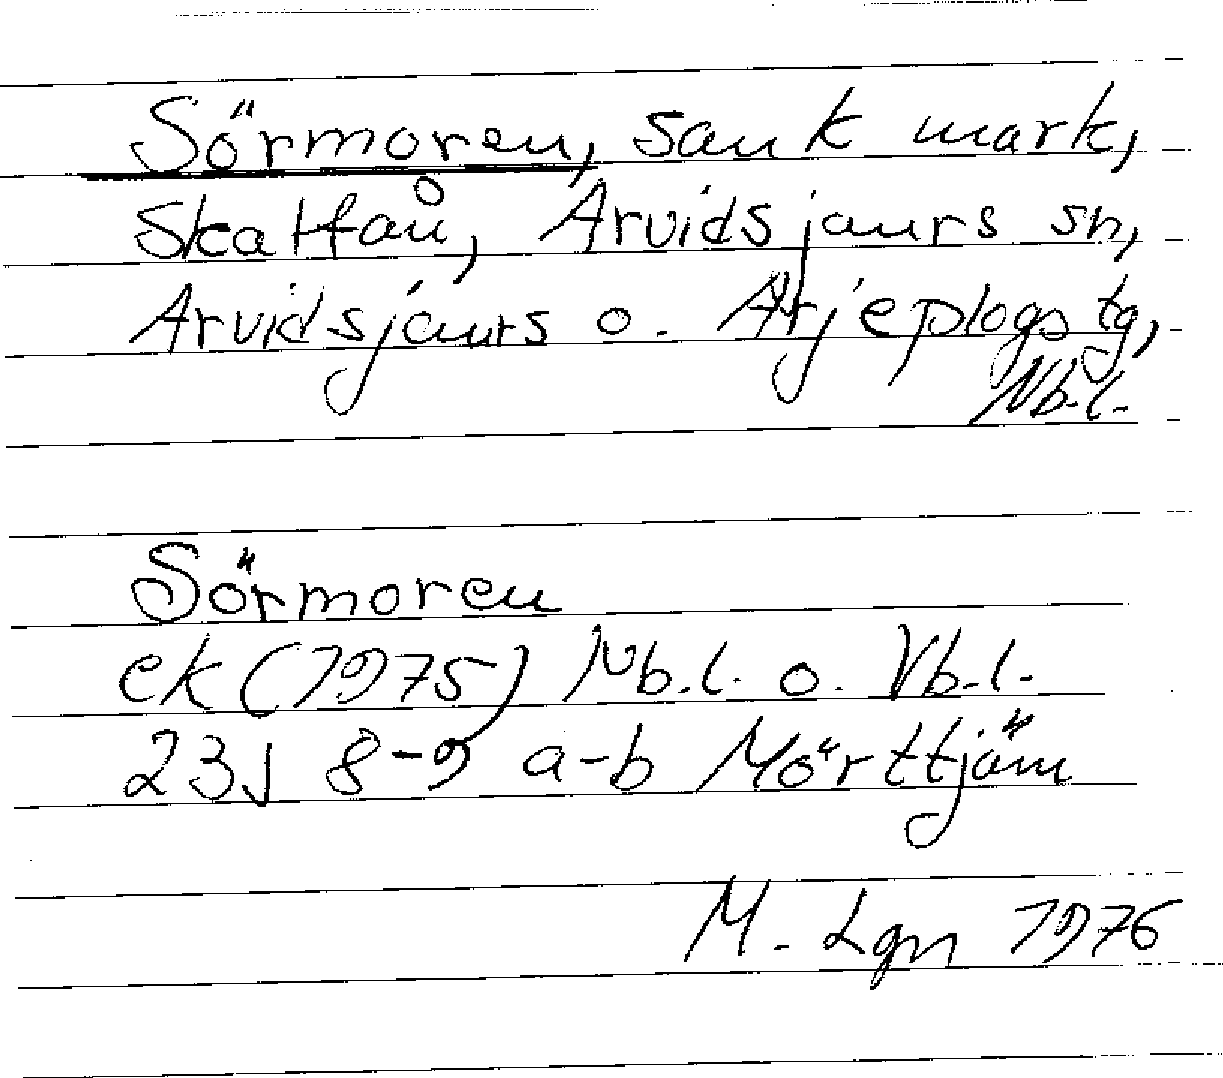 Sörmoren, sank mark,
Skatfån, Arvidsjaurs sn,
Arvidsjaurs o. Arjeplogs tg,
Nb.l.
Sörmoren
ek (1975) Nb.l. o. Vb.l.
23J 8-9 a-b Mörttjärn
M. Lgn 1976